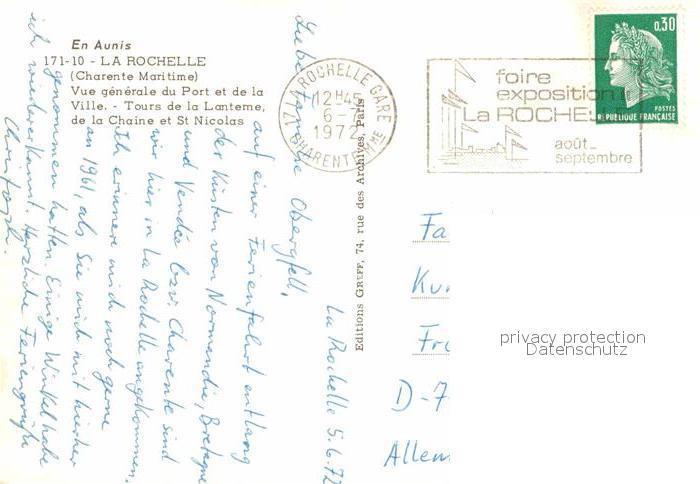 En Aunis
171-10 - LA ROCHELLE
(Charente Maritime)
Vue générale du Port et de la
Ville. - Tours de la Lanterne,
de la Chaine et St Nicolas
17 LA ROCHELLE GARE
12H45
6-7
1972
CHARENTE MME
foire
exposition
La ROCHELLE
août_
septembre
0,30
POSTES
REPUBLIQUE FRANÇAISE
Editions GREFF, 74, rue des Archives, Paris
La Rochelle 5.6.72
Liebe Familie Obergfell,
auf einer Ferienfahrt entlang
der Küsten von Normandie, Bretagne
und Vendée bzw. Charente sind
wir hier in La Rochelle angekommen.
Ich erinnere mich noch gerne
an 1961, als Sie mich mit hierher
genommen hatten. Einige Winkel habe
ich wiedererkannt. Herzliche Feriengrüße
Christoph.
Fa
Ku
Fr
D-7
Allem
privacy protection
Datenschutz